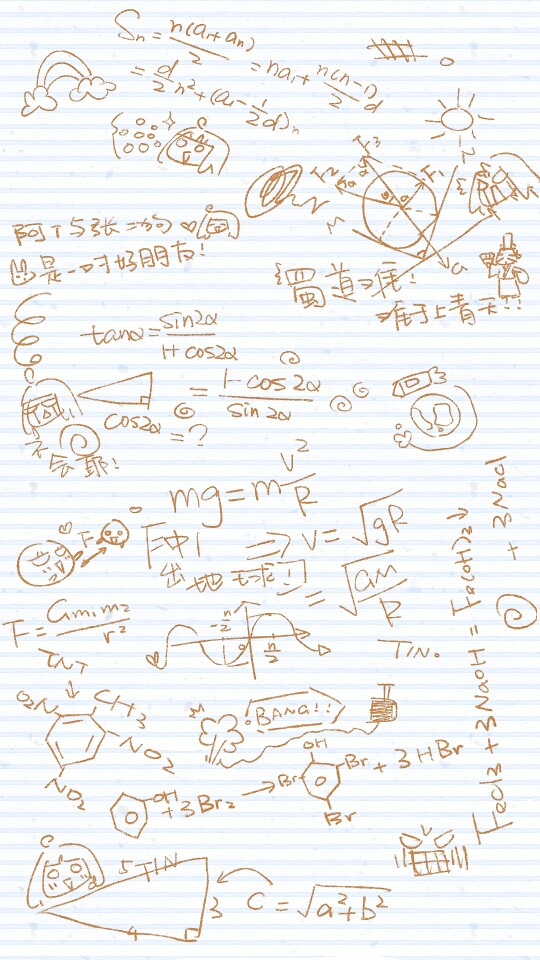 Sn = n(a₁+an)/2 = na₁ + n(n-1)/2 d
= d/2 n² + (a₁ - 1/2 d)n
F₃
F₂
F₁
N
M
G
阿丁与张二狗
是一对好朋友!
蜀道难!
难于上青天!!
tanα = sin2α/1+cos2α
= 1-cos2α/sin2α
cos2α = ?
不会耶!
mg = m v²/R
冲!
出地球!
⇒ v = √gR
= √GM/R
F
F = Gm₁m₂/r²
-π/2
π/2
TIN.
TNT
↓
O₂N
CH₃
NO₂
NO₂
BANG!!
OH + 3Br₂ → OH Br Br Br + 3HBr
FeCl3 + 3NaOH = Fe(OH)₃↓ + 3NaCl
5 TIN
3
4
C = √a²+b²